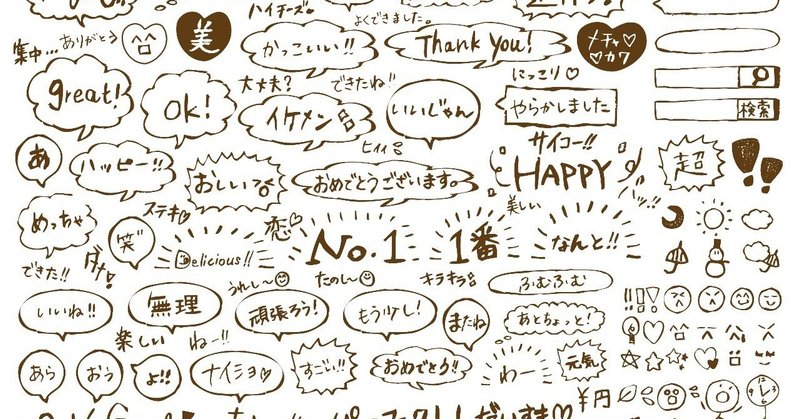 ハイチーズ
よくできました。
集中…
ありがと
美
かっこいい!!
Thank You!
メチャ♡
♡カワ
great!
ok!
大丈夫?
できたね!!
にっこり♡
イケメン
いいじゃん
やらかしました
検索
サイコー!!
あ
ハッピー!!
おしい
ヒィィ
おめでとうございます。
HAPPY
超
美しい
めっちゃ
ステキ
笑
恋
Delicious!!
No.1
1番
なんと!!
できた!!
ダメ!
うれし〜
たのし〜
キラキラ
ふむふむ
いいね!!
無理
頑張ろう!
もう少し!
またね
あとちょっと!
楽しい
ねー!!
あら
おう
よ!!
ナイショ♡
すごい!!
おめでとう!!
わー
元気
¥
円